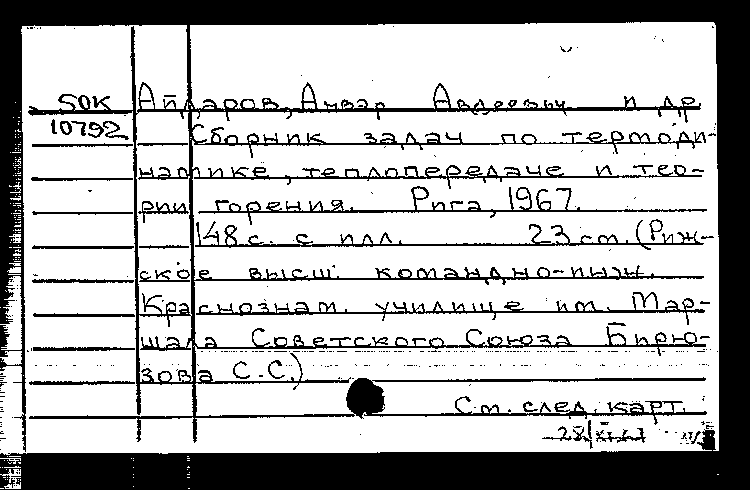 50К Айдаров, Анвэр Авдеевич и др
10792 Сборник задач по термоди-
намике, теплопередаче и тео-
рии горения. Рига, 1967.
148 с. с илл. 23 см. (Риж-
ское высш. командно-инж.
Краснознам. училище им. Мар-
шала Советского Союза Бирю-
зова С.С.)
См. след. карт.
28